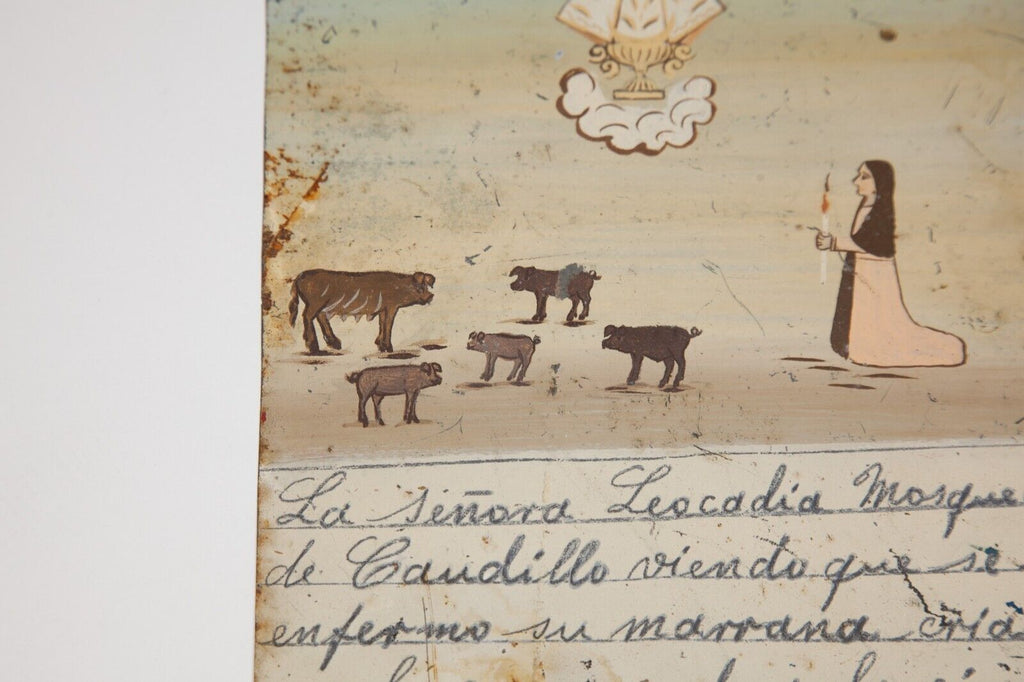 La señora Leocadia Mosque
de Caudillo viendo que se
enfermo su marrana cria